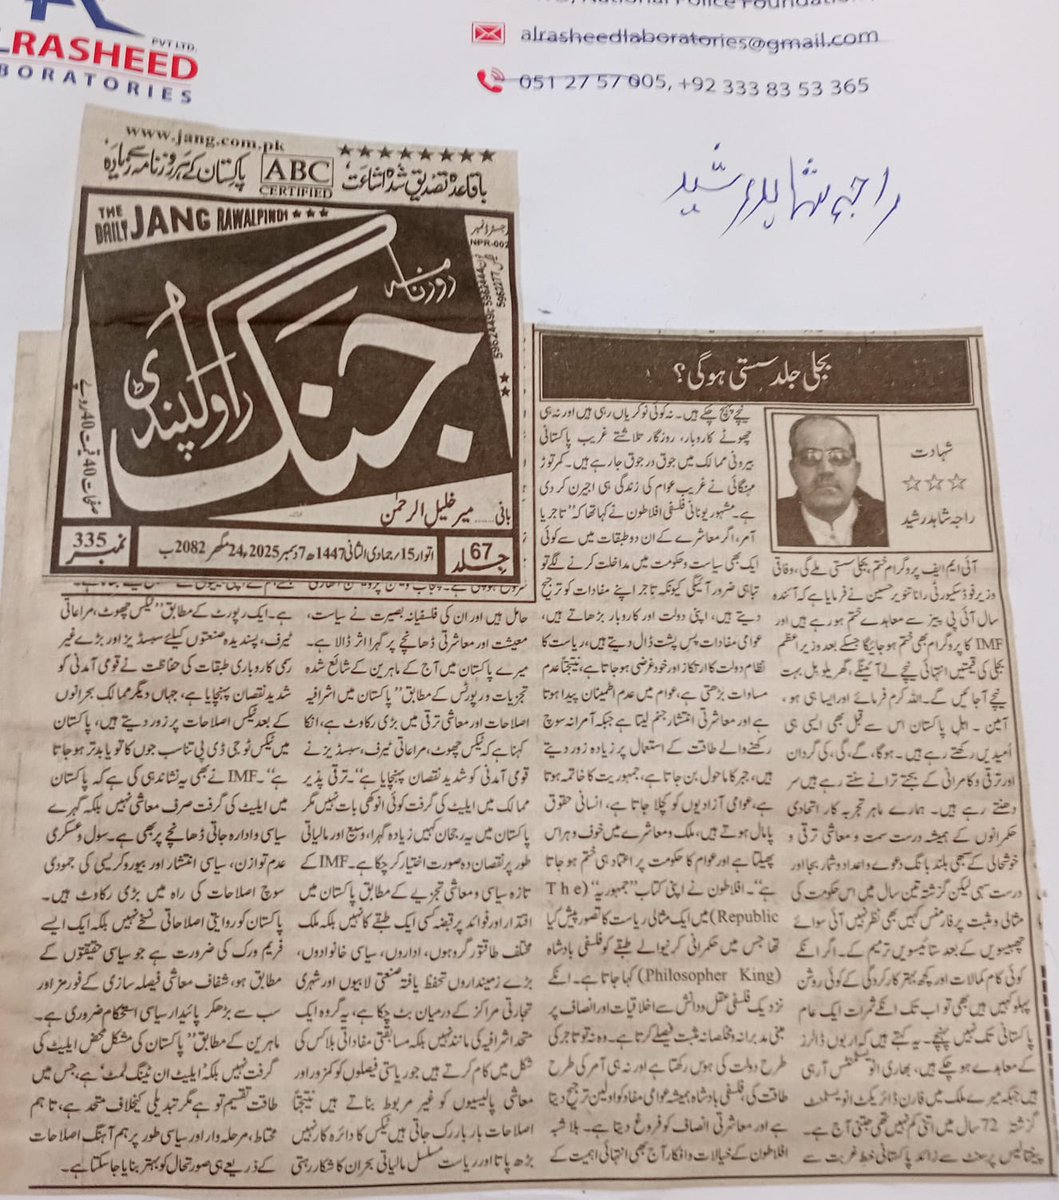 PVT LTD.
LRASHEED
BORATORIES
National Police Foundation
alrasheedlaboratories@gmail.com
051 27 57 005, +92 333 83 53 365
راجہ شاہد رشید
www.jang.com.pk
پاکستان کے ہر روزنامہ سے زیادہ
ABC
CERTIFIED
باقاعدہ تصدیق شدہ اشاعت
THE DAILY JANG RAWALPINDI
رجسٹرڈ نمبر
NPR-002
روزنامہ
جنگ
راولپنڈی
صفحات 40 قیمت 40 روپے
بانی ...... میر خلیل الرحمٰن
جلد 67
اتوار 15/ جمادی الثانی 1447ھ 7 دسمبر 2025ء 24 مگھر 2082 ب
نمبر 335
بجلی جلد سستی ہوگی؟
شہادت
☆☆☆
راجہ شاہد رشید
آئی ایم ایف پروگرام ختم، بجلی سستی ملے گی، وفاقی
وزیر فوڈ سیکیورٹی رانا تنویر حسین نے فرمایا ہے کہ آئندہ
سال آئی پی پیز سے معاہدے ختم ہو رہے ہیں اور
IMF کا پروگرام بھی ختم ہو جائیگا جسکے بعد وزیر اعظم
بجلی کی قیمتیں انتہائی نیچے لے آئینگے، گھریلو بل بہت
نیچے آ جائیں گے۔ اللہ کرم فرمائے اور ایسا ہی ہو،
آمین۔ اہل پاکستان اس سے قبل بھی ایسی ہی
اُمیدیں رکھتے رہے ہیں۔ ہوگا، گے، گی، کی گردان
اور ترقی و کامرانی کے بجتے ترانے سنتے رہے ہیں سر
دھنتے رہے ہیں۔ ہمارے ماہر تجربہ کار اتحادی
حکمرانوں کے ہمیشہ درست سمت و معاشی ترقی و
خوشحالی کے بھی بلند بانگ دعوے و اعداد و شمار بجا اور
درست سہی لیکن گزشتہ تین سال میں اس حکومت کی
مثالی و مثبت پرفارمنس کہیں بھی نظر نہیں آئی سوائے
چھبیسویں کے بعد ستائیسویں ترمیم کے۔ اگر انکے
کوئی کام کمالات اور کچھ بہتر کارکردگی کے کوئی روشن
پہلو کہیں ہیں بھی تو اب تک انکے ثمرات ایک عام
پاکستانی تک نہیں پہنچے۔ یہ کہتے ہیں کہ اربوں ڈالرز
کے معاہدے ہو چکے ہیں، بھاری انویسٹمنٹس آ رہی
ہیں جبکہ میرے ملک میں فارن ڈائریکٹ انویسٹمنٹ
گزشتہ 72 سال میں اتنی کم نہیں تھی جتنی آج ہے۔
پینتالیس پرسنٹ سے زائد پاکستانی خط غربت سے
نیچے پہنچ چکے ہیں۔ نہ کوئی نوکریاں رہی ہیں اور نہ ہی
چھوٹے کاروبار، روزگار تلاشتے غریب پاکستانی
بیرونی ممالک میں جوق در جوق جا رہے ہیں۔ کمر توڑ
مہنگائی نے غریب عوام کی زندگی ہی اجیرن کر دی
ہے۔ مشہور یونانی فلسفی افلاطون نے کہا تھا کہ "تاجر یا
آمر، اگر معاشرے کے ان دو طبقات میں سے کوئی
ایک بھی سیاست و حکومت میں مداخلت کرنے لگے تو
تباہی ضرور آئیگی کیونکہ تاجر اپنے مفادات کو ترجیح
دیتے ہیں، اپنی دولت اور کاروبار بڑھاتے ہیں،
عوامی مفادات پس پشت ڈال دیتے ہیں، ریاست کا
نظام دولت کا ارتکاز اور خود غرضی ہو جاتا ہے، نتیجتاً عدم
مساوات بڑھتی ہے، عوام میں عدم اطمینان پیدا ہوتا
ہے اور معاشرتی انتشار جنم لیتا ہے جبکہ آمرانہ سوچ
رکھنے والے طاقت کے استعمال پر زیادہ زور دیتے
ہیں، جبر کا ماحول بن جاتا ہے، جمہوریت کا خاتمہ ہوتا
ہے، عوامی آزادیوں کو کچلا جاتا ہے، انسانی حقوق
پامال ہوتے ہیں، ملک و معاشرے میں خوف و ہراس
پھیلتا ہے اور عوام کا حکومت پر اعتماد ہی ختم ہو جاتا
ہے"۔ افلاطون نے اپنی کتاب "جمہوریہ" (The
Republic) میں ایک مثالی ریاست کا تصور پیش کیا
تھا جس میں حکمرانی کرنیوالے طبقے کو فلسفی بادشاہ
(Philosopher King) کہا جاتا ہے۔ انکے
نزدیک فلسفی عقل و دانش سے اخلاقیات اور انصاف پر
مبنی مدبرانہ و مخلصانہ مثبت فیصلے کرتا ہے۔ وہ نہ تو تاجر کی
طرح دولت کی ہوس رکھتا ہے اور نہ ہی آمر کی طرح
طاقت کی، فلسفی بادشاہ ہمیشہ عوامی مفاد کو اولین ترجیح دیتا
ہے اور معاشرتی انصاف کو فروغ دیتا ہے۔ بلاشبہ
افلاطون کے خیالات و افکار آج بھی انتہائی اہمیت کے
حامل ہیں اور ان کی فلسفیانہ بصیرت نے سیاست،
معیشت اور معاشرتی ڈھانچے پر گہرا اثر ڈالا ہے۔
میرے پاکستان میں آج کے ماہرین کے شائع شدہ
تجزیات و رپورٹس کے مطابق "پاکستان میں اشرافیہ
اصلاحات اور معاشی ترقی میں بڑی رکاوٹ ہے، انکا
کہنا ہے کہ ٹیکس چھوٹ، مراعاتی ٹیرف، سبسڈیز نے
قومی آمدنی کو شدید نقصان پہنچایا ہے"۔ ترقی پذیر
ممالک میں ایلیٹ کی گرفت کوئی انوکھی بات نہیں مگر
پاکستان میں یہ رجحان کہیں زیادہ گہرا، وسیع اور مالیاتی
طور پر نقصان دہ صورت اختیار کر چکا ہے۔ IMF کے
تازہ سیاسی و معاشی تجزیے کے مطابق پاکستان میں
اقتدار اور فوائد پر قبضہ کسی ایک طبقے کا نہیں بلکہ ملک
مختلف طاقتور گروہوں، اداروں، سیاسی خانوادوں،
بڑے زمینداروں تحفظ یافتہ صنعتی لابیوں اور شہری
تجارتی مراکز کے درمیان بٹ چکا ہے، یہ گروہ ایک
متحد اشرافیہ کی مانند نہیں بلکہ مسابقتی مفاداتی بلاکس کی
شکل میں کام کرتے ہیں جو ریاستی فیصلوں کو کمزور اور
معاشی پالیسیوں کو غیر مربوط بناتے ہیں نتیجتاً
اصلاحات بار بار رک جاتی ہیں ٹیکس کا دائرہ کار نہیں
بڑھ پاتا اور ریاست مسلسل مالیاتی بحران کا شکار رہتی
ہے۔ ایک رپورٹ کے مطابق "ٹیکس چھوٹ، مراعاتی
ٹیرف، پسندیدہ صنعتوں کیلئے سبسڈیز اور بڑے غیر
رسمی کاروباری طبقات کی حفاظت نے قومی آمدنی کو
شدید نقصان پہنچایا ہے، جہاں دیگر ممالک بحرانوں
کے بعد ٹیکس اصلاحات پر زور دیتے ہیں، پاکستان
میں ٹیکس ٹو جی ڈی پی تناسب جوں کا تو یا بدتر ہو جاتا
ہے"۔ IMF نے بھی یہ نشاندہی کی ہے کہ پاکستان
میں ایلیٹ کی گرفت صرف معاشی نہیں بلکہ گہرے
سیاسی و ادارہ جاتی ڈھانچے پر بھی ہے۔ سول و عسکری
عدم توازن، سیاسی انتشار اور بیوروکریسی کی جمودی
سوچ اصلاحات کی راہ میں بڑی رکاوٹ ہیں۔
پاکستان کو روایتی اصلاحاتی نسخے نہیں بلکہ ایک ایسے
فریم ورک کی ضرورت ہے جو سیاسی حقیقتوں کے
مطابق ہو، شفاف معاشی فیصلہ سازی کے فورمز اور
سب سے بڑھکر پائیدار سیاسی استحکام ضروری ہے۔
ماہرین کے مطابق "پاکستان کی مشکل محض ایلیٹ کی
گرفت نہیں بلکہ 'ایلیٹ ان ٹینگل منٹ' ہے، جس میں
طاقت تقسیم تو ہے مگر تبدیلی کیخلاف متحد ہے، تاہم
محتاط، مرحلہ وار اور سیاسی طور پر ہم آہنگ اصلاحات
کے ذریعے ہی صورتحال کو بہتر بنایا جا سکتا ہے۔